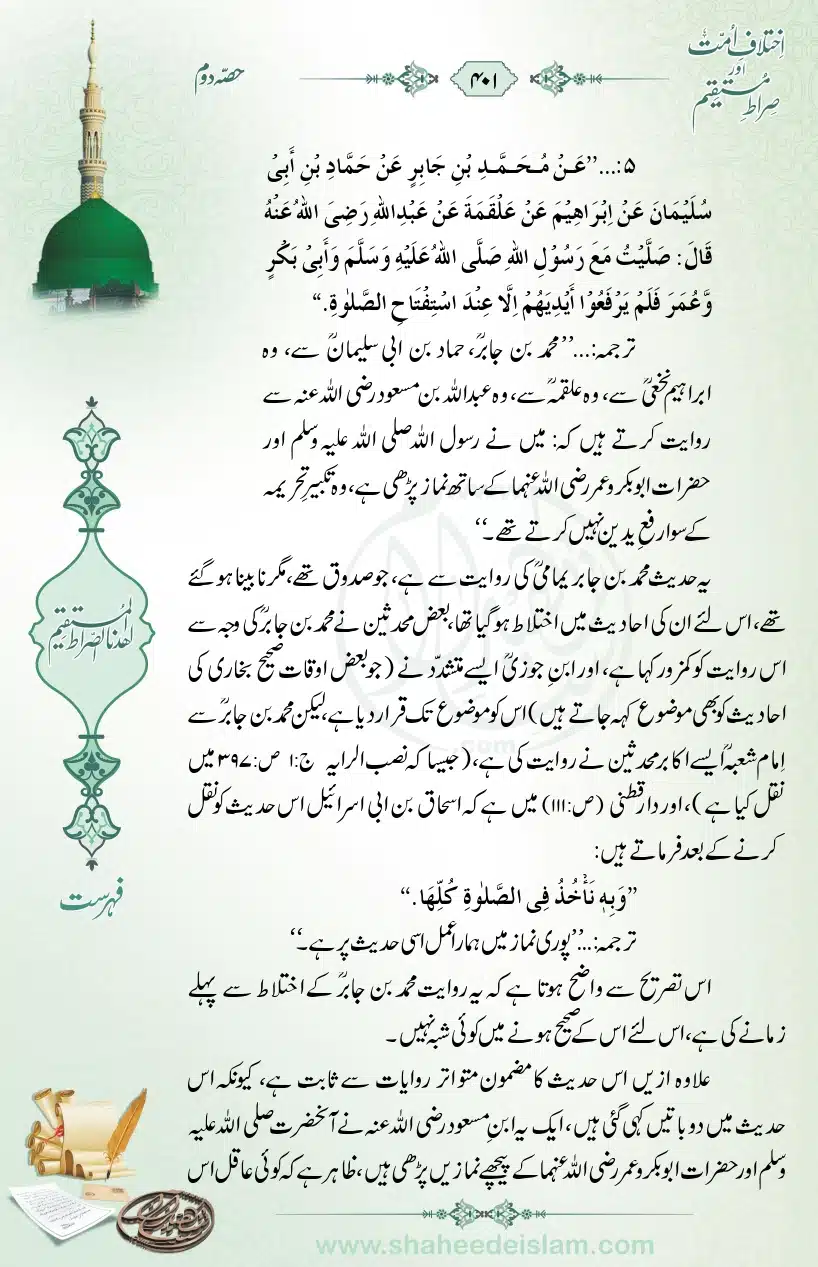 اِختلافِ اُمّت
اور
صِراطِ مُستقیم
۴۰۱
حصّہ دوم
۵:...’’عَنْ مُحَمَّدِ بْنِ جَابِرٍ عَنْ حَمَّادِ بْنِ أَبِیْ
سُلَیْمَانَ عَنْ اِبْرَاھِیْمَ عَنْ عَلْقَمَةَ عَنْ عَبْدِاللهِ رَضِیَ اللهُ عَنْهُ
قَالَ: صَلَّیْتُ مَعَ رَسُوْلِ اللهِ صَلَّی اللهُ عَلَیْهِ وَسَلَّمَ وَأَبِیْ بَکْرٍ
وَّعُمَرَ فَلَمْ یَرْفَعُوْا أَیْدِیَھُمْ اِلَّا عِنْدَ اسْتِفْتَاحِ الصَّلٰوةِ.‘‘
ترجمہ:...’’محمد بن جابرؒ، حماد بن ابی سلیمانؒ سے، وہ
ابراہیم نخعیؒ سے، وہ علقمہؒ سے، وہ عبداللہ بن مسعود رضی اللہ عنہ سے
روایت کرتے ہیں کہ: میں نے رسول اللہ صلی اللہ علیہ وسلم اور
حضرات ابوبکر و عمر رضی اللہ عنہما کے ساتھ نماز پڑھی ہے، وہ تکبیرِ تحریمہ
کے سوا رفعِ یدین نہیں کرتے تھے۔‘‘
یہ حدیث محمد بن جابر یمامیؒ کی روایت سے ہے، جو صدوق تھے، مگر نابینا ہوگئے
تھے، اس لئے ان کی احادیث میں اختلاط ہوگیا تھا، بعض محدثین نے محمد بن جابرؒ کی وجہ سے
اس روایت کو کمزور کہا ہے، اور ابنِ جوزیؒ ایسے متشدّد نے (جو بعض اوقات صحیح بخاری کی
احادیث کو بھی موضوع کہہ جاتے ہیں) اس کو موضوع تک قرار دیا ہے، لیکن محمد بن جابرؒ سے
اِمام شعبہؒ ایسے اکابر محدثین نے روایت کی ہے، (جیسا کہ نصب الرایہ ج:۱ ص:۳۹۷ میں
نقل کیا ہے)، اور دارقطنی (ص:۱۱۱) میں ہے کہ اسحاق بن ابی اسرائیل اس حدیث کو نقل
کرنے کے بعد فرماتے ہیں:
’’وَبِهٖ نَأْخُذُ فِی الصَّلٰوةِ کُلِّھَا.‘‘
ترجمہ:...’’پوری نماز میں ہمارا عمل اسی حدیث پر ہے۔‘‘
اس تصریح سے واضح ہوتا ہے کہ یہ روایت محمد بن جابرؒ کے اختلاط سے پہلے
زمانے کی ہے، اس لئے اس کے صحیح ہونے میں کوئی شبہ نہیں۔
علاوہ ازیں اس حدیث کا مضمون متواتر روایات سے ثابت ہے، کیونکہ اس
حدیث میں دو باتیں کہی گئی ہیں، ایک یہ ابنِ مسعود رضی اللہ عنہ نے آنحضرت صلی اللہ علیہ
وسلم اور حضرات ابوبکر و عمر رضی اللہ عنہما کے پیچھے نمازیں پڑھی ہیں، ظاہر ہے کہ کوئی عاقل اس
اهدنا الصراط المستقیم
فہرست
www.shaheedeislam.com